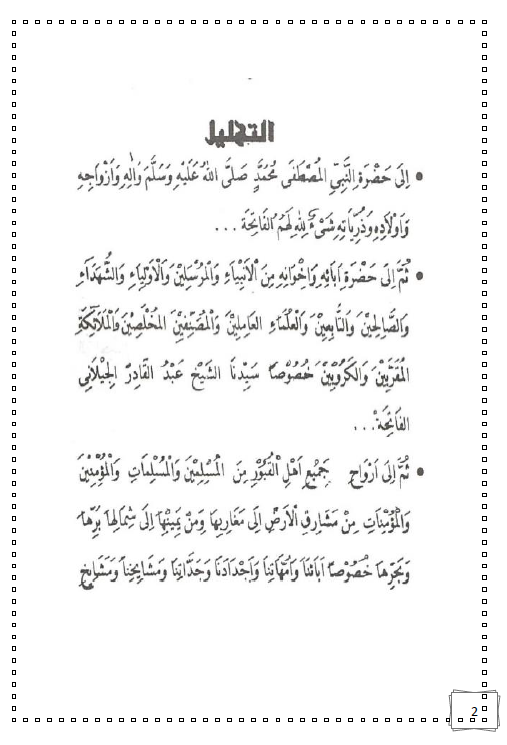 التهليل
• اِلَى حَضْرَةِ النَّبِيِّ الْمُصْطَفَى مُحَمَّدٍ صَلَّى اللهُ عَلَيْهِ وَسَلَّمَ وَاٰلِهِ وَاَزْوَاجِهِ
وَاَوْلَادِهِ وَذُرِّيَّاتِهِ شَيْءٌ لِلّٰهِ لَهُمُ الْفَاتِحَةَ ...
• ثُمَّ اِلَى حَضْرَةِ اٰبَائِهِ وَاِخْوَانِهِ مِنَ الْاَنْبِيَاءِ وَالْمُرْسَلِيْنَ وَالْاَوْلِيَاءِ وَالشُّهَدَاءِ
وَالصَّالِحِيْنَ وَالتَّابِعِيْنَ وَالْعُلَمَاءِ الْعَامِلِيْنَ وَالْمُصَنِّفِيْنَ الْمُخْلَصِيْنَ وَالْمَلَآئِكَةِ
الْمُقَرَّبِيْنَ وَالْكَرُوْبِيِّيْنَ خُصُوْصًا سَيِّدِنَا الشَّيْخِ عَبْدُ الْقَادِرْ الْجِيْلَانِى
الْفَاتِحَةْ ...
• ثُمَّ اِلَى اَرْوَاحِ جَمِيْعِ اَهْلِ الْقُبُوْرِ مِنَ الْمُسْلِمِيْنَ وَالْمُسْلِمَاتِ وَالْمُؤْمِنِيْنَ
وَالْمُؤْمِنَاتِ مِنْ مَشَارِقِ الْاَرْضِ اِلَى مَغَارِبِهَا وَمِنْ يَمِيْنِهَا اِلَى شِمَالِهَا بَرِّهَا
وَبَحْرِهَا خُصُوْصًا اٰبَائَنَا وَاُمَّهَاتِنَا وَاَجْدَادَنَا وَجَدَّاتِنَا وَمَشَايِخِنَا وَمَشَايِخِ
2